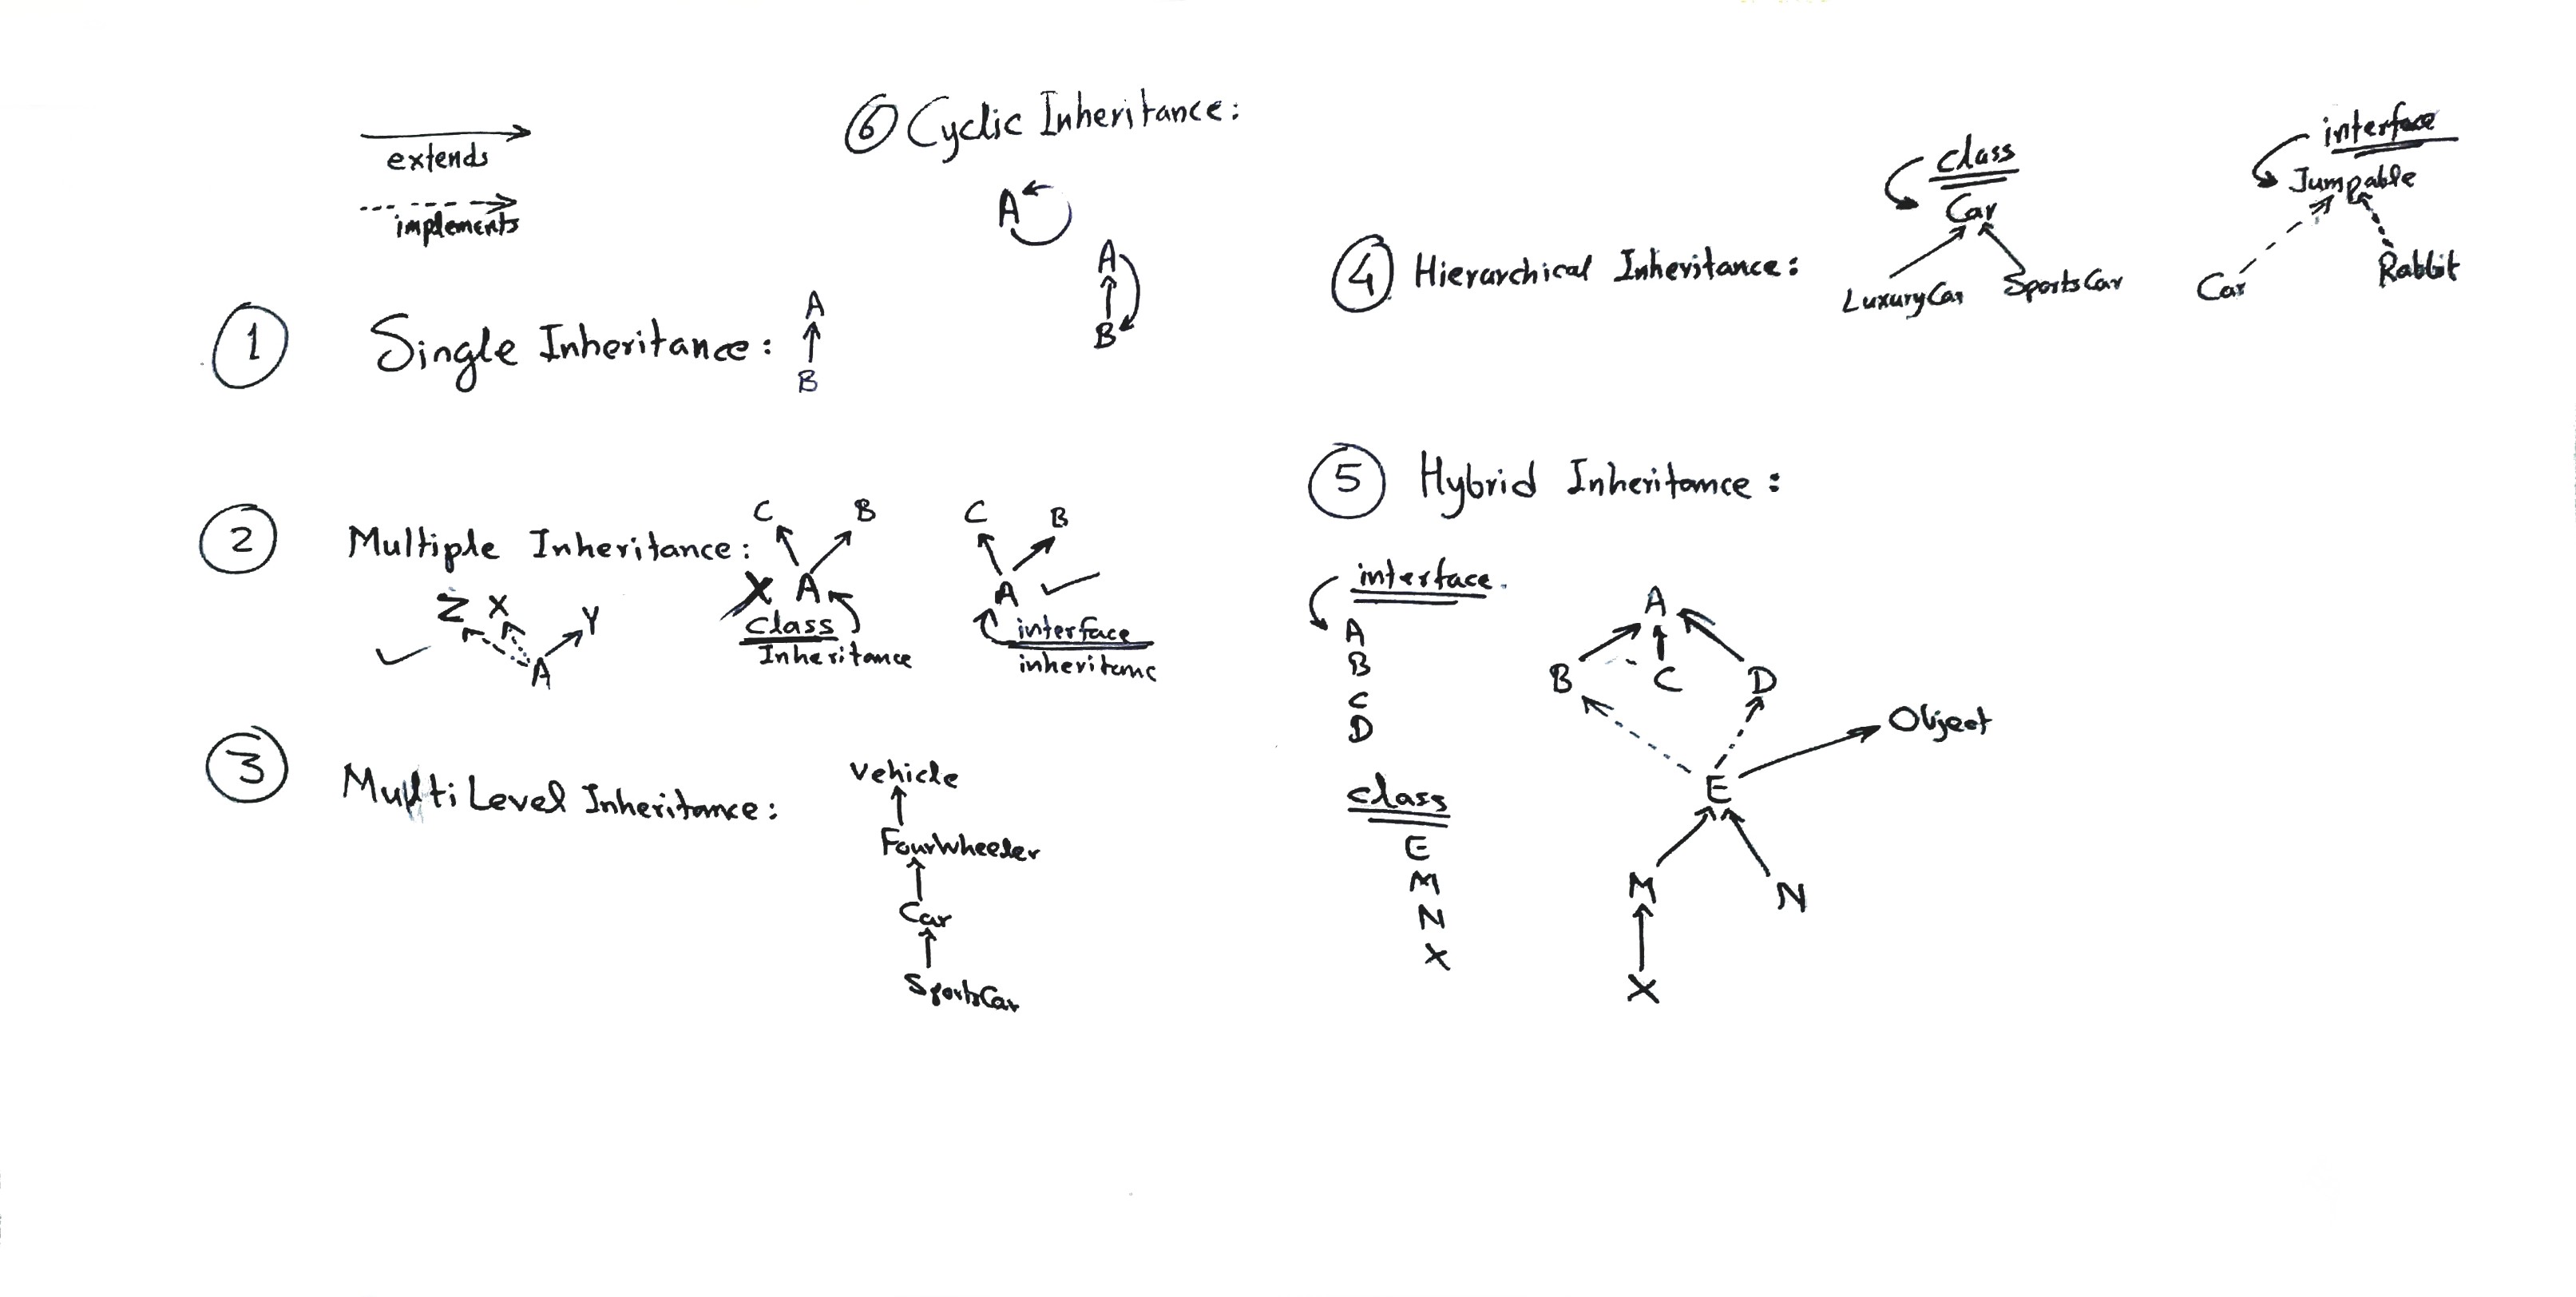 extends
implements
① Single Inheritance:
A
B
② Multiple Inheritance:
C B
A
X
Class
Inheritance
C B
A
interface
inheritanc
Z X Y
A
③ MultiLevel Inheritance:
Vehicle
FourWheeler
Car
SportsCar
⑥ Cyclic Inheritance:
A
A
B
④ Hierarchical Inheritance:
class
Car
LuxuryCar SportsCar
interface
Jumpable
Car Rabbit
⑤ Hybrid Inheritance:
interface
A
B
C
D
class
E
M
N
X
A
B C D
Object
E
M N
X